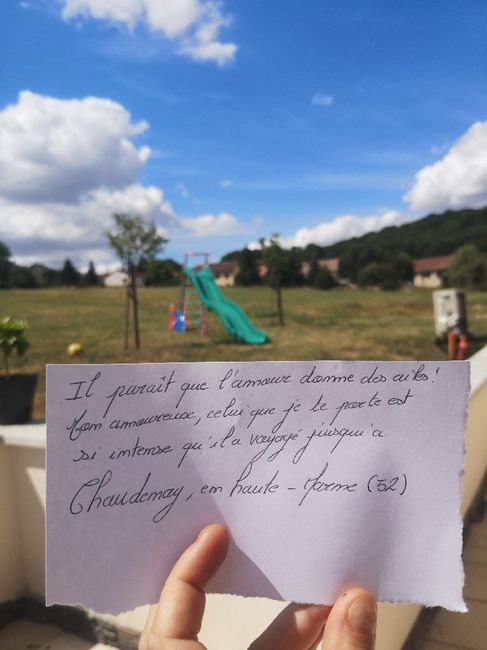 Il paraît que l'amour donne des ailes!
Mon amoureux, celui que je te porte est
si intense qu'il a voyagé jusqu'à
Chaudenay, en haute-Marne (52)